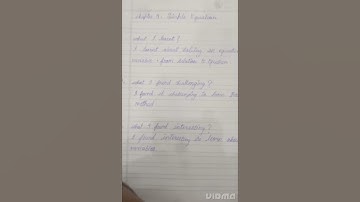 chapter 4: Simple Equations
what I learnt?
I learnt about Solving an equation
from Solution to Equation
what I found challenging?
I found it challenging to learn
method
what I found interesting?
I found interesting to learn
variables
VIDMA